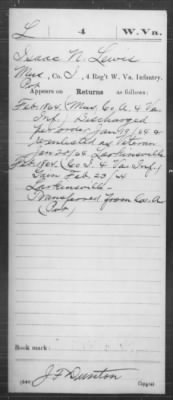 L 4 W.Va.
Isaac N. Lewis
Mus, Co. I, 4 Reg't W. Va. Infantry.
Pvt
Appears on Returns as follows:
Feb. 1864 (Mus. Co A. 4 Va
Inf.) Discharged
per order Jan 19/64 &
reenlisted as Veteran
Jan 20/64 Larkinsville
Feb. 1864. (Co I. 4 Va Inf.)
Gain Feb. 23/64
Larkinsville -
Transferred from Co. A
(Pvt)
Book mark:
J F Dunton
(546) Copyist